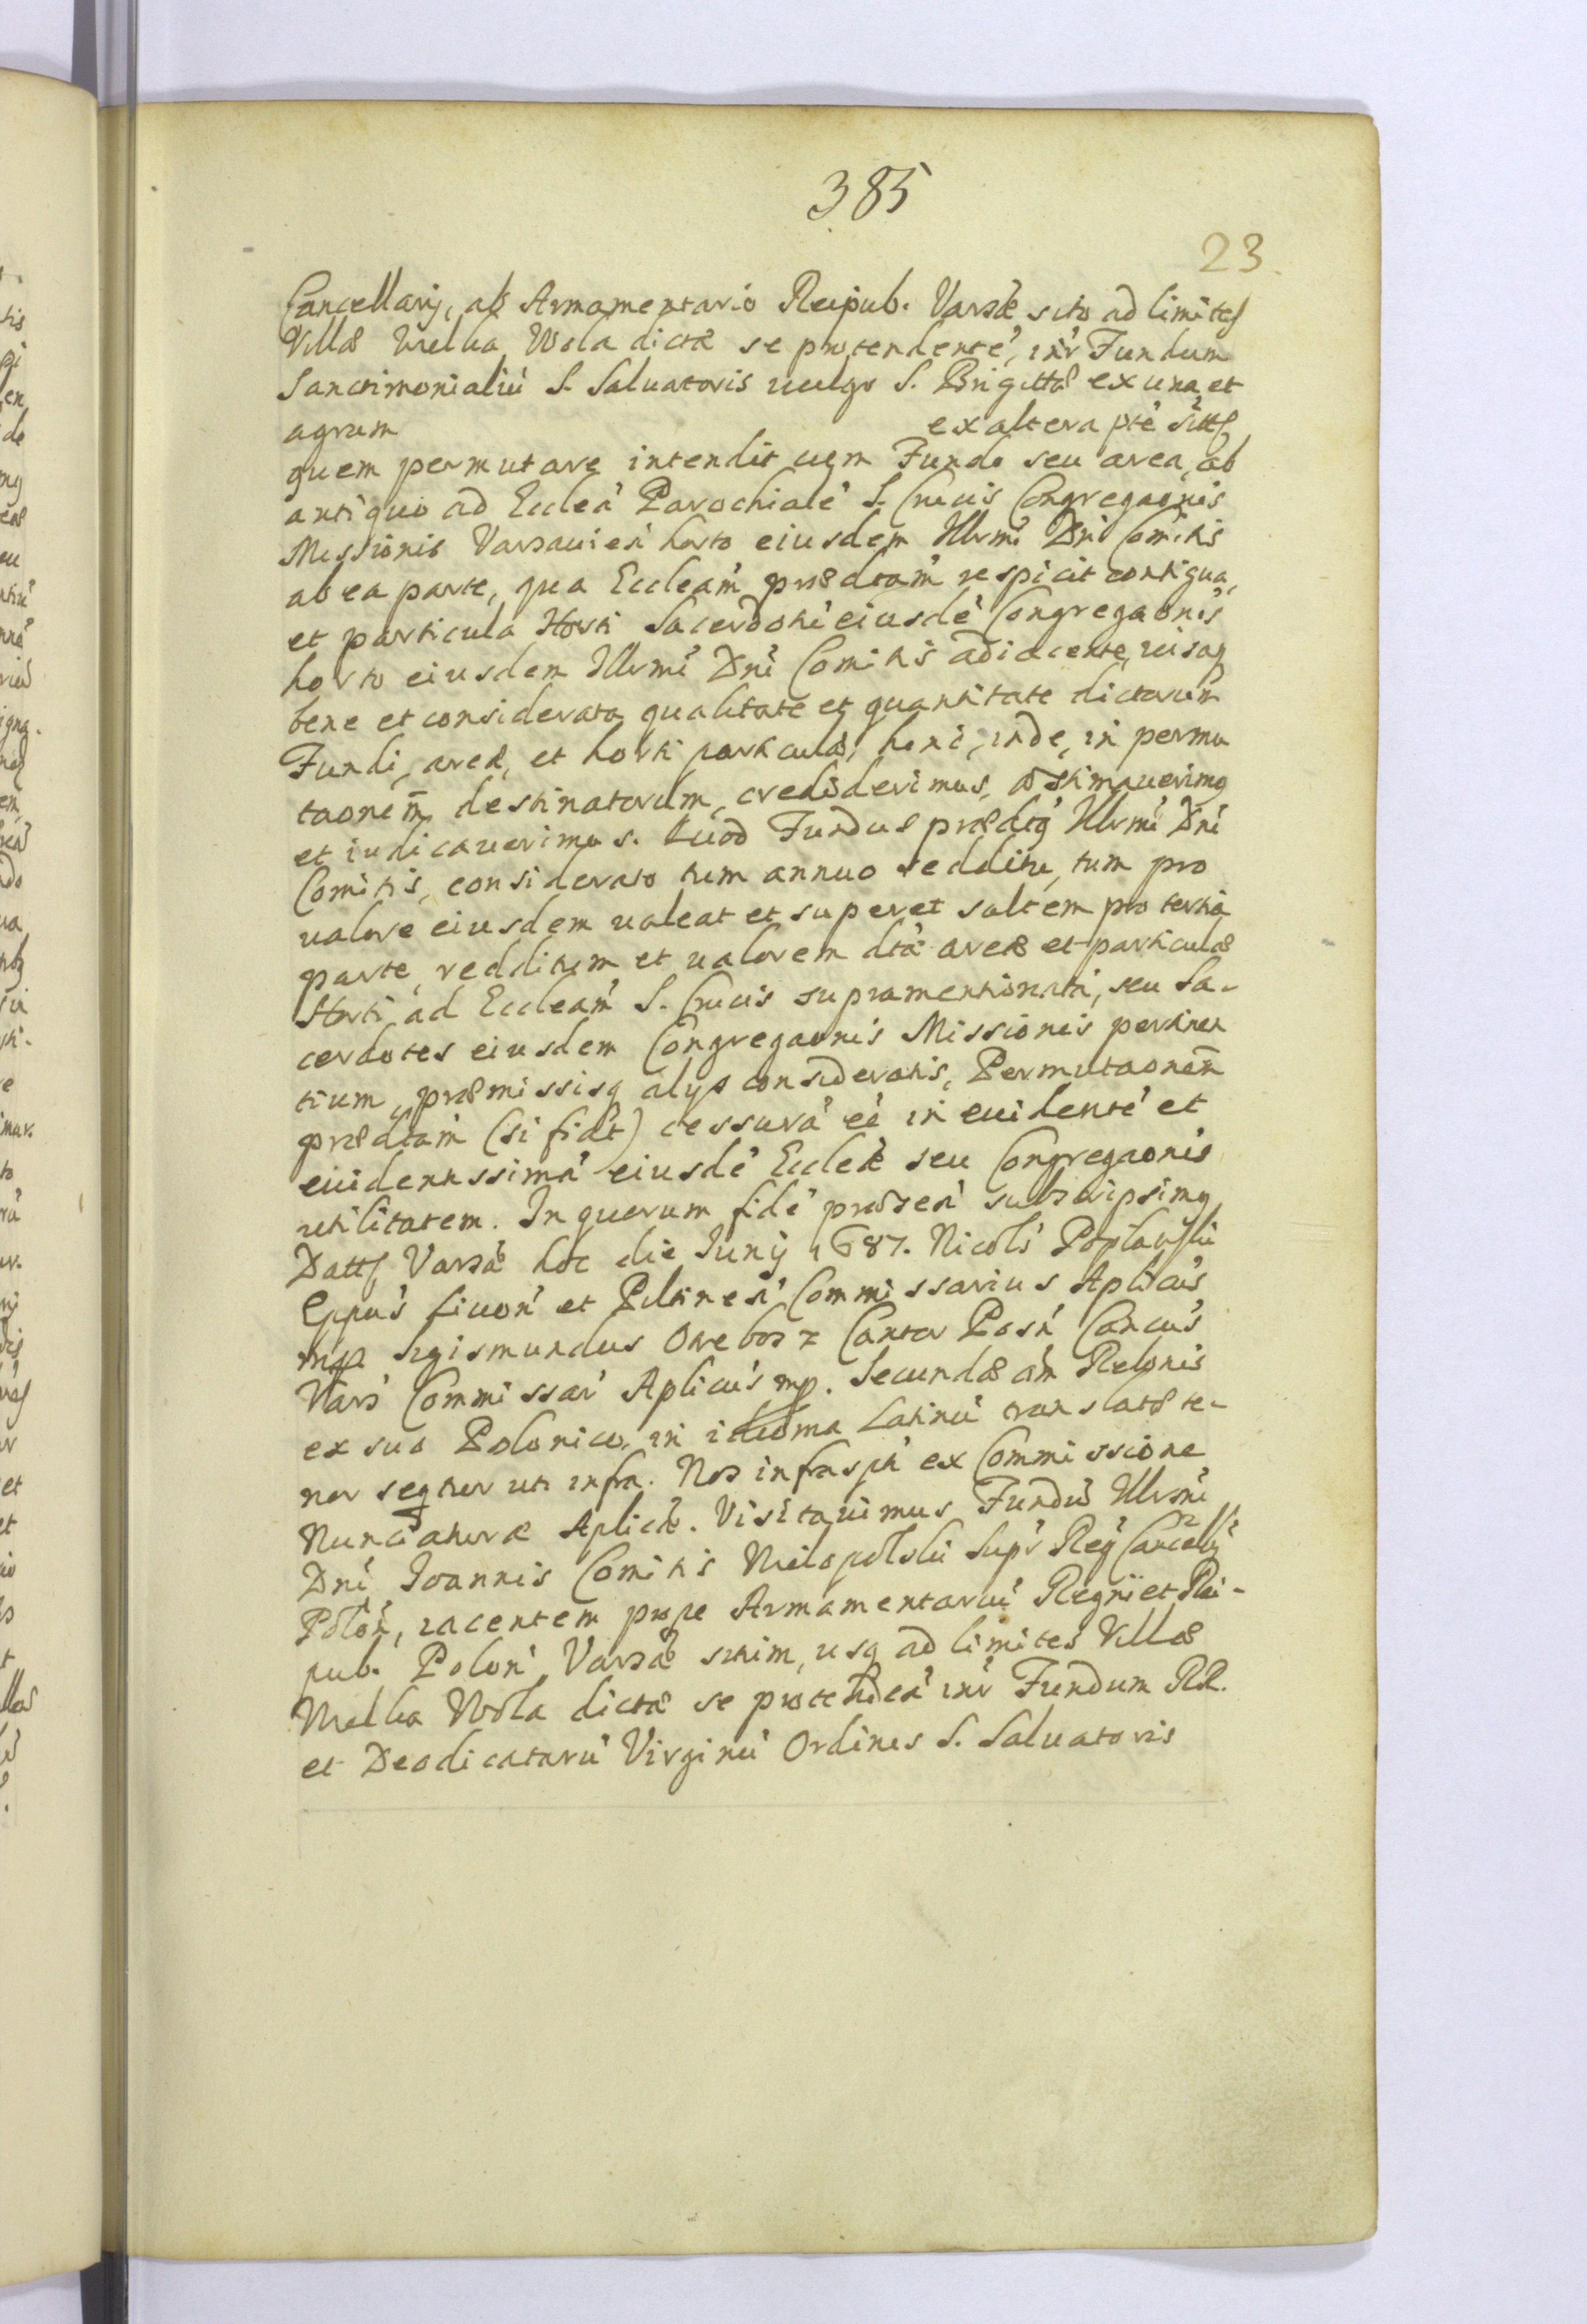 385
23
Cancellarij, ab Armamentario Reipub. Varsæ sito ad limites
Villæ Wielka Wola dictæ se protendentē, intr Fundum
Sanctimonialiū S. Saluatoris uulgo S. Brigittæ ex una, et
agrum ex altera pte sitū
quem permutare intendit cum Fundo seu area, ab
antiquo ad Eccleā Parochialē S. Crucis Congregaonis
Missionis Varsauieñ horto eiusdem Illrmi Dni Comitis
ab ea parte, qua Eccleam prædtam respicit contigua,
et particula Horti Sacerdotū eiusdē Congregaonis
horto eiusdem Illrmi Dni Comitis adiacente, uisaq
bene et considerata qualitate et quantitate dictorum
Fundi, areæ, et horti particulæ, hinc, inde, in permu
taonem destinatorum, crediderimus, æstimauerimq
et iudicauerimus. Quod Fundus prædtq Illrmi Dni
Comitis, considerato tum annuo redditu, tum pro
ualore eiusdem ualeat et superet saltem pro tertia
parte, redditum et ualorem dtæ areæ et particulæ
Horti ad Eccleam S. Crucis supramentionatā, seu Sa-
cerdotes eiusdem Congregaonis Missionis pertinen
tium, præmissisq alijs consideratis, Permutaonem
prædtam (si fiat) cessurā eē in euidentē et
euidentissimā eiusdē Eccleæ seu Congregaonis
utilitatem. In quorum fidē præseñ subscripsimq
Datt Varsæ hac die Junij 1687. Nicols Poplawski
Eppus Liuoñ et Piltineñ Commissarius Aplicus
mp Sigismundus Orebosz Cantor Posñ Cancus
Vars Commissar Aplicus mp. Secundæ aūm Relonis
ex suo Polonico, in idioma Latinū translatæ te-
nor seqtur uti infra. Nos infrascpti ex Commissione
Nunciaturæ Aplicæ. Visitauimus Fundū Illrmi
Dni Joannis Comitis Wielopolski Supr Reg Cancellij
Poloñ, iacentem prope Armamentariū Regni et Rei-
pub. Poloñ, Varsæ situm, usq ad limites Villæ
Wielka Wola dictæ se protendeñ intr Fundum RR.
et Deodicatarū Virginū Ordinis S. Saluatoris